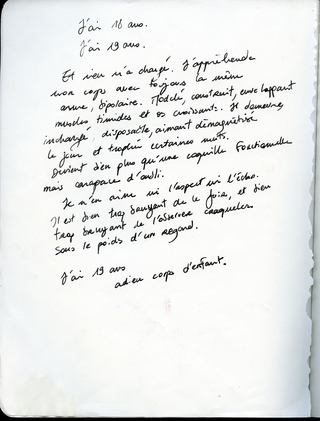 J'ai 16 ans.
J'ai 19 ans.
Et rien n'a changé. J'appréhende
mon corps avec toujours la même
arme, bipolaire. Modelé, construit, enveloppant
muscles timides et os croissants. Il demeure
inchangé, disparate, aimant démagnétisé
le jour et trophée certaines nuits.
Devient d'en plus qu'une coquille fonctionnelle
mais carapace d'oubli.
Je n'en aime ni l'aspect ni l'écho.
Il est bien trop bruyant de le fuir, et bien
trop bruyant de l'observer craqueler
sous le poids d'un regard.
J'ai 19 ans
adieu corps d'enfant.